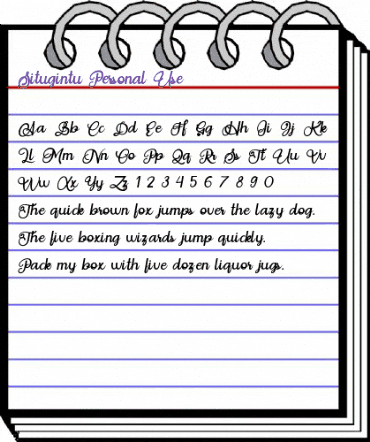 Situgintu Personal Use
Aa Bb Cc Dd Ee Ff Gg Hh Ii Jj Kk
Ll Mm Nn Oo Pp Qq Rr Ss Tt Uu Vv
Ww Xx Yy Zz 1 2 3 4 5 6 7 8 9 0
The quick brown fox jumps over the lazy dog.
The five boxing wizards jump quickly.
Pack my box with five dozen liquor jugs.